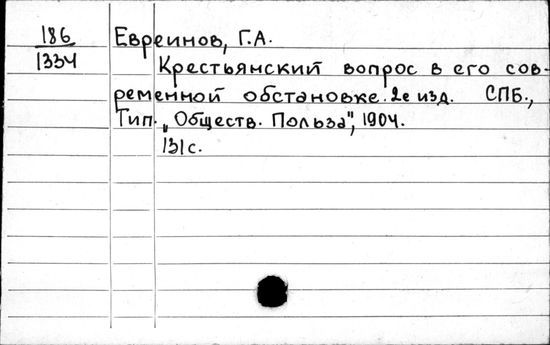 186
1334
Евреинов, Г.А.
Крестьянский вопрос в его сов-
ременной обстановке. 2е изд. СПБ.,
Тип. „Обществ. Польза", 1904.
131 с.